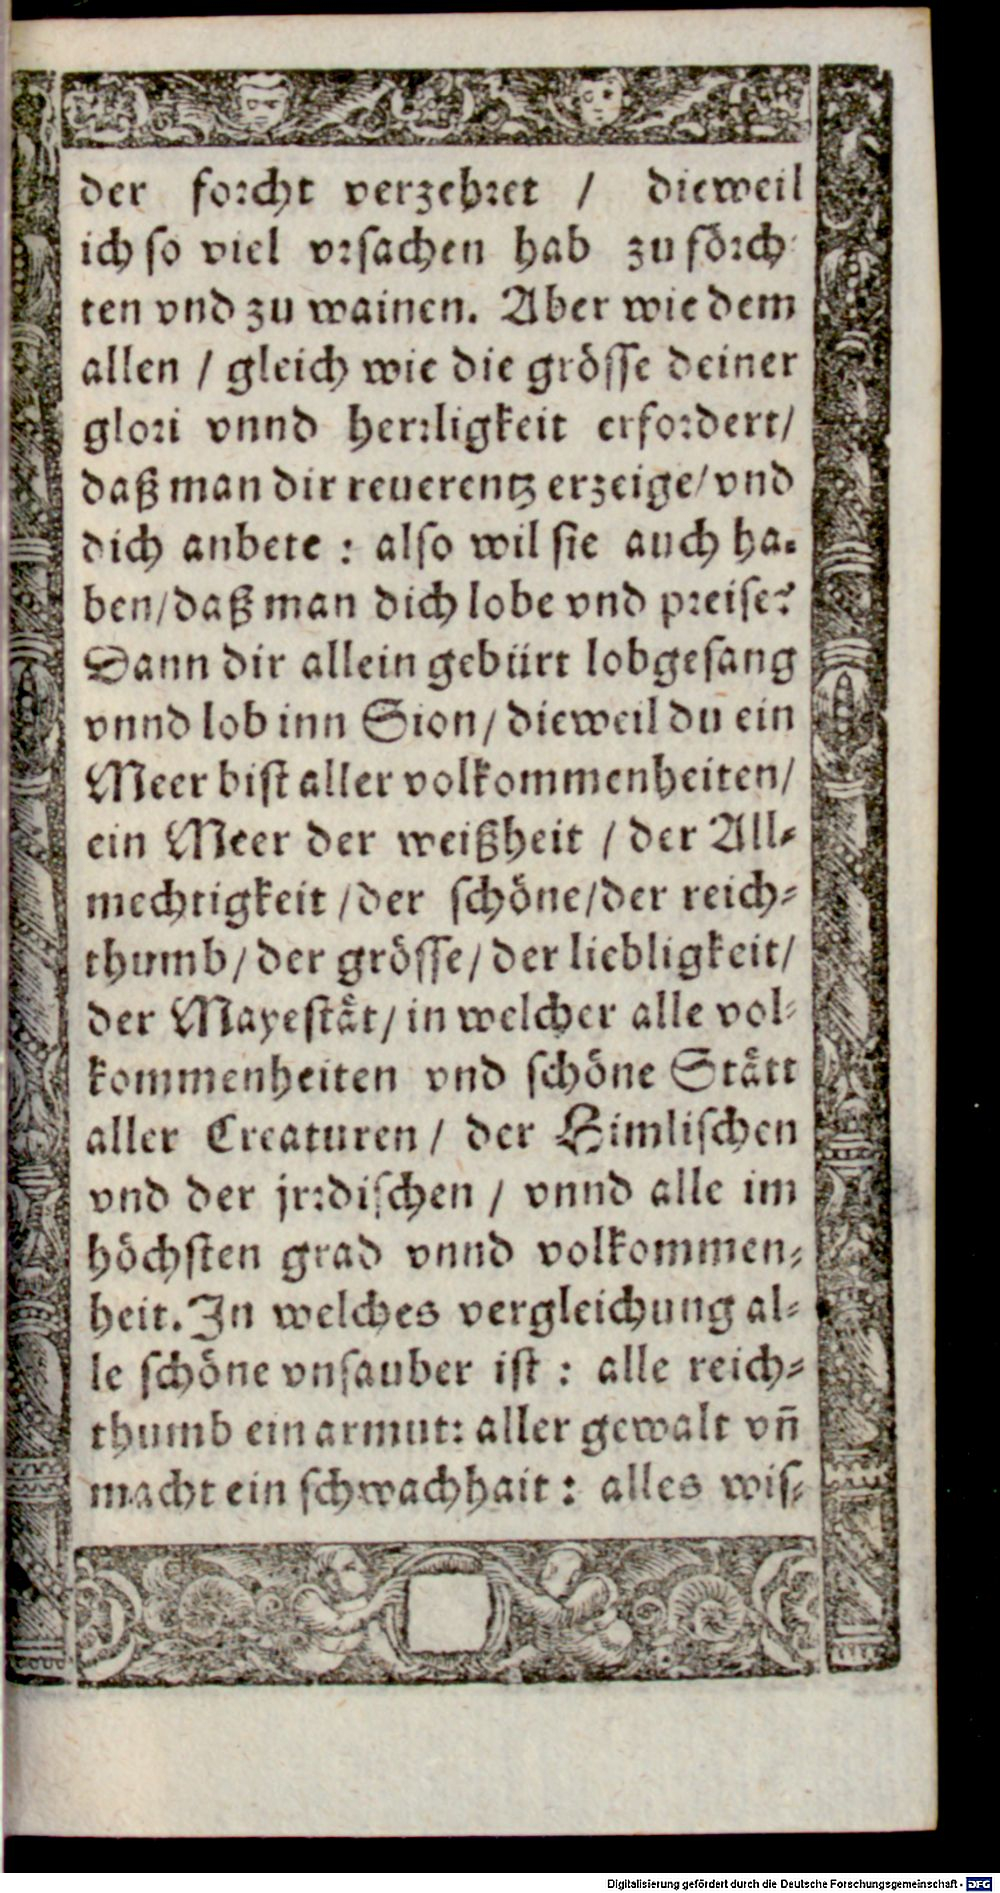 der forcht verzehret / dieweil
ich so viel vrsachen hab zu förch-
ten vnd zu wainen. Aber wie dem
allen / gleich wie die grösse deiner
glori vnnd herrligkeit erfordert/
daß man dir reuerentz erzeige/vnd
dich anbete : also wil sie auch ha-
ben/daß man dich lobe vnd preise?
Dann dir allein gebürt lobgesang
vnnd lob inn Sion/dieweil du ein
Meer bist aller volkommenheiten/
ein Meer der weißheit / der All-
mechtigkeit /der schöne/der reich-
thumb/der grösse/der liebligkeit/
der Mayestät/in welcher alle vol-
kommenheiten vnd schöne Stätt
aller Creaturen / der Himlischen
vnd der jrrdischen / vnnd alle im
höchsten grad vnnd volkommen-
heit. In welches vergleichung al-
le schöne vnsauber ist : alle reich-
thumb ein armut: aller gewalt vñ
macht ein schwachhait : alles wis-
Digitalisierung gefördert durch die Deutsche Forschungsgemeinschaft - DFG